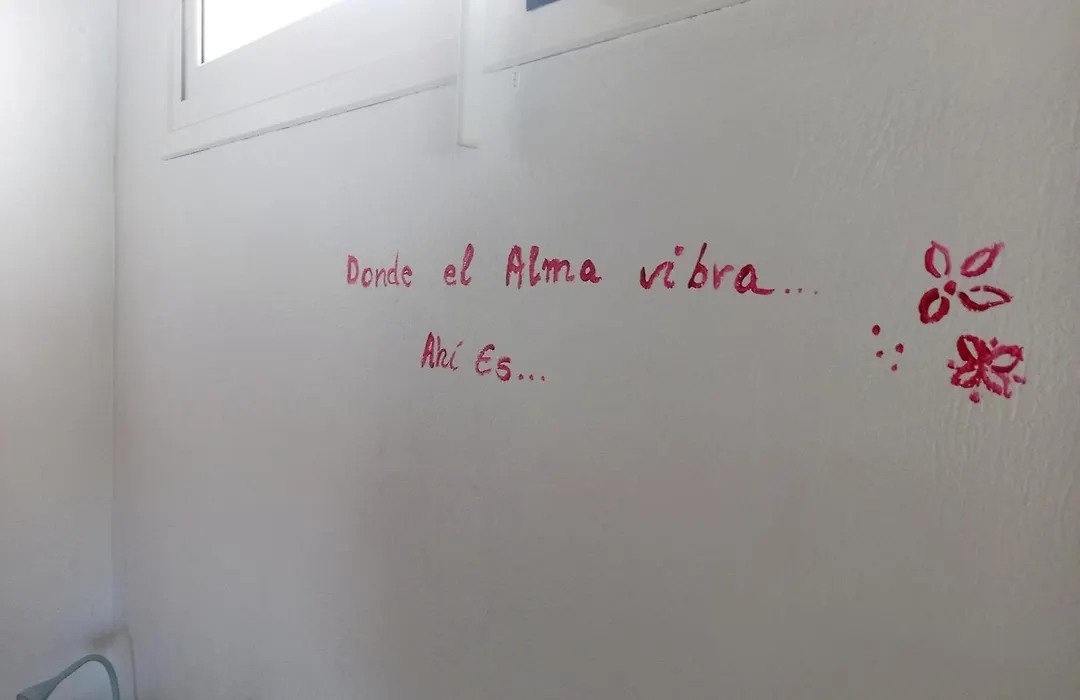 Donde el Alma vibra...
Ahí Es...